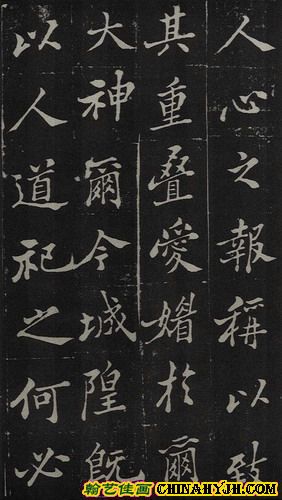 人心之報稱以致
其重疊愛媢於爾
大神爾今城隍既
以人道祀之何必
翰艺佳画
CHINAHYJH.COM